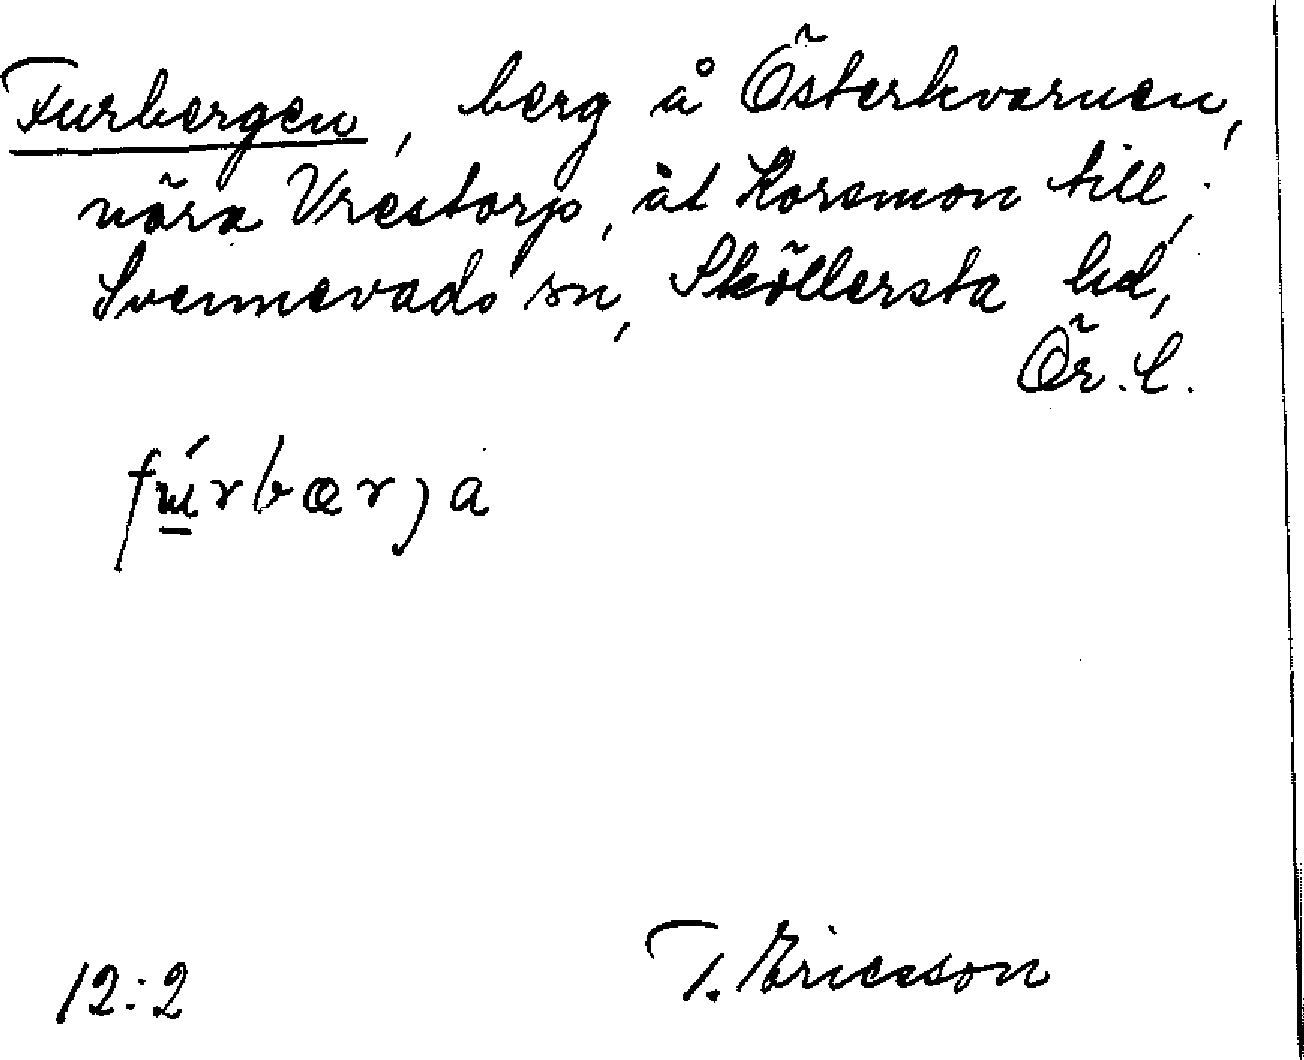 Furbergen, berg å Österkvarnen,
nära Vrestorp, åt Korsmon till,
Svennevads sn, Sköllersta hd,
Ör. l.
fúrbærja
12:2 T. Ericsson